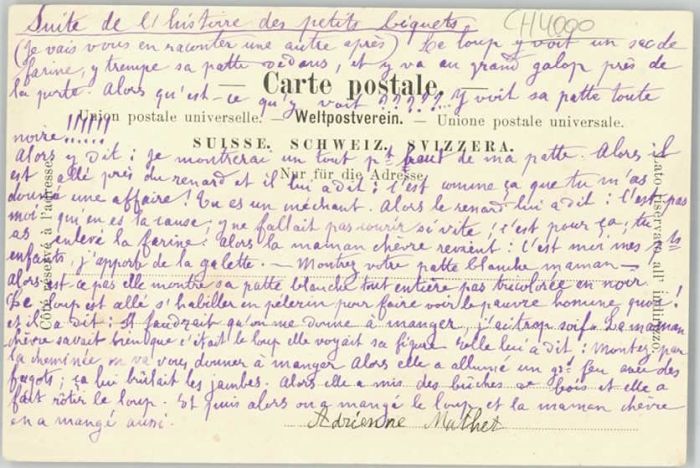 Suite de l'histoire des petits biquets. CH4000
(Je vais vous en raconter une autre après) Le loup y voit un sac de
farine, y trempe sa patte dedans, et y va au grand galop près de
— Carte postale. —
la porte. Alors qu'est-ce qu'y voit ????? ... Y voit sa patte toute
Union postale universelle. — Weltpostverein. — Unione postale universale.
noire !!!!!!
SUISSE. SCHWEIZ. SVIZZERA.
Alors y dit : je montrerai un tout pt bout de ma patte. Alors il
Nur für die Adresse.
est allé près du renard et il lui a dit : c'est comme ça que tu m'as
donné une affaire ! Tu es un méchant. Alors le renard lui a dit : C'est pas
moi qui en es la cause, y ne fallait pas courir si vite, c'est pour ça ; tu
as enlevé la farine. Alors la maman chèvre revient : C'est moi mes pts
enfants, j'apporte de la galette. — Montrez votre patte blanche maman —
Alors est-ce pas elle montre sa patte blanche tout entière pas tricolorée en noir
Le loup est allé s'habiller en pèlerin pour faire voir le pauvre homme, quoi !
et il a dit : Il faudrait qu'on me donne à manger, j'ai trop soif. La maman
chèvre savait bien que c'était le loup elle voyait sa figure. Elle lui a dit : Montez par
la cheminée on va vous donner à manger Alors elle a allumé un gd feu avec des
fagots ; ça lui brûlait les jambes. Alors elle a mis des bûches de bois et elle a
fait rôtir le loup. Et puis alors on a mangé le loup et la maman chèvre
en a mangé aussi.
Adrienne Mathey
Côté réservé à l'adresse.
Lato riservato all' indirizzo.